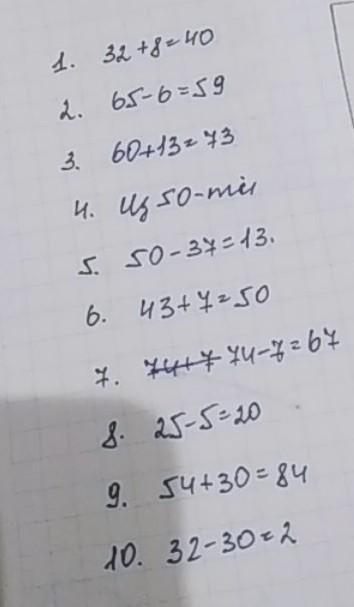 1. 32+8=40
2. 65-6=59
3. 60+13=73
4. Из 50-ти
5. 50-37=13.
6. 43+7=50
7. 74+7 74-7=67
8. 25-5=20
9. 54+30=84
10. 32-30=2